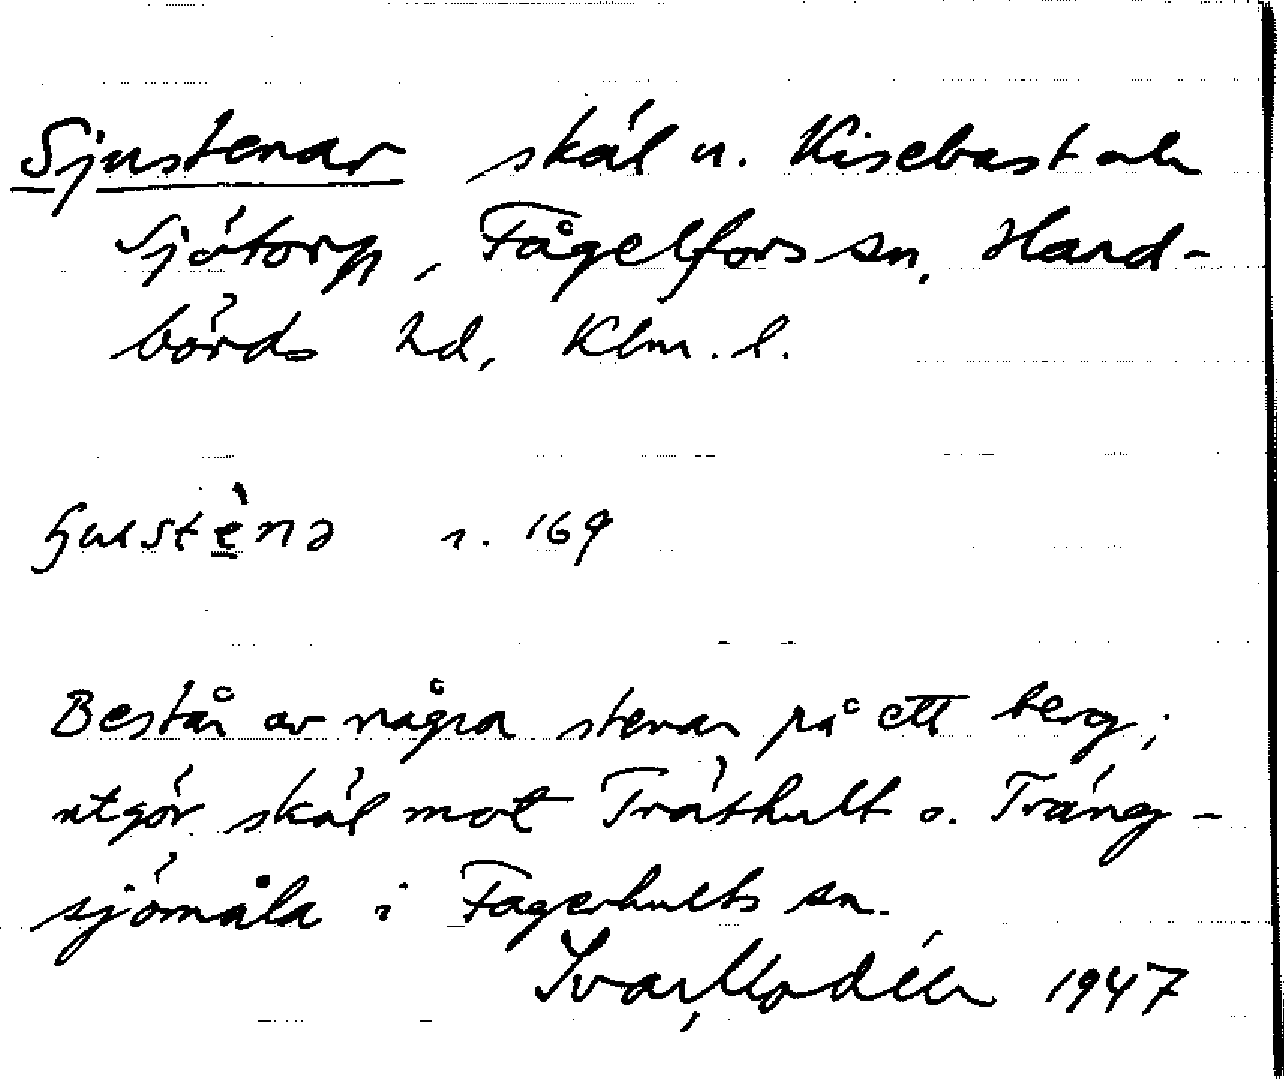 Sjustenar skäl u. Kisebast och
Sjötorp, Fågelfors sn, Hand-
börds hd, Klm. l.
r. 169
Består av några stenar på ett berg;
utgör skäl mot Träthult o. Träng-
sjömåla i Fagerhults sn.
Ivar Modéer 1947